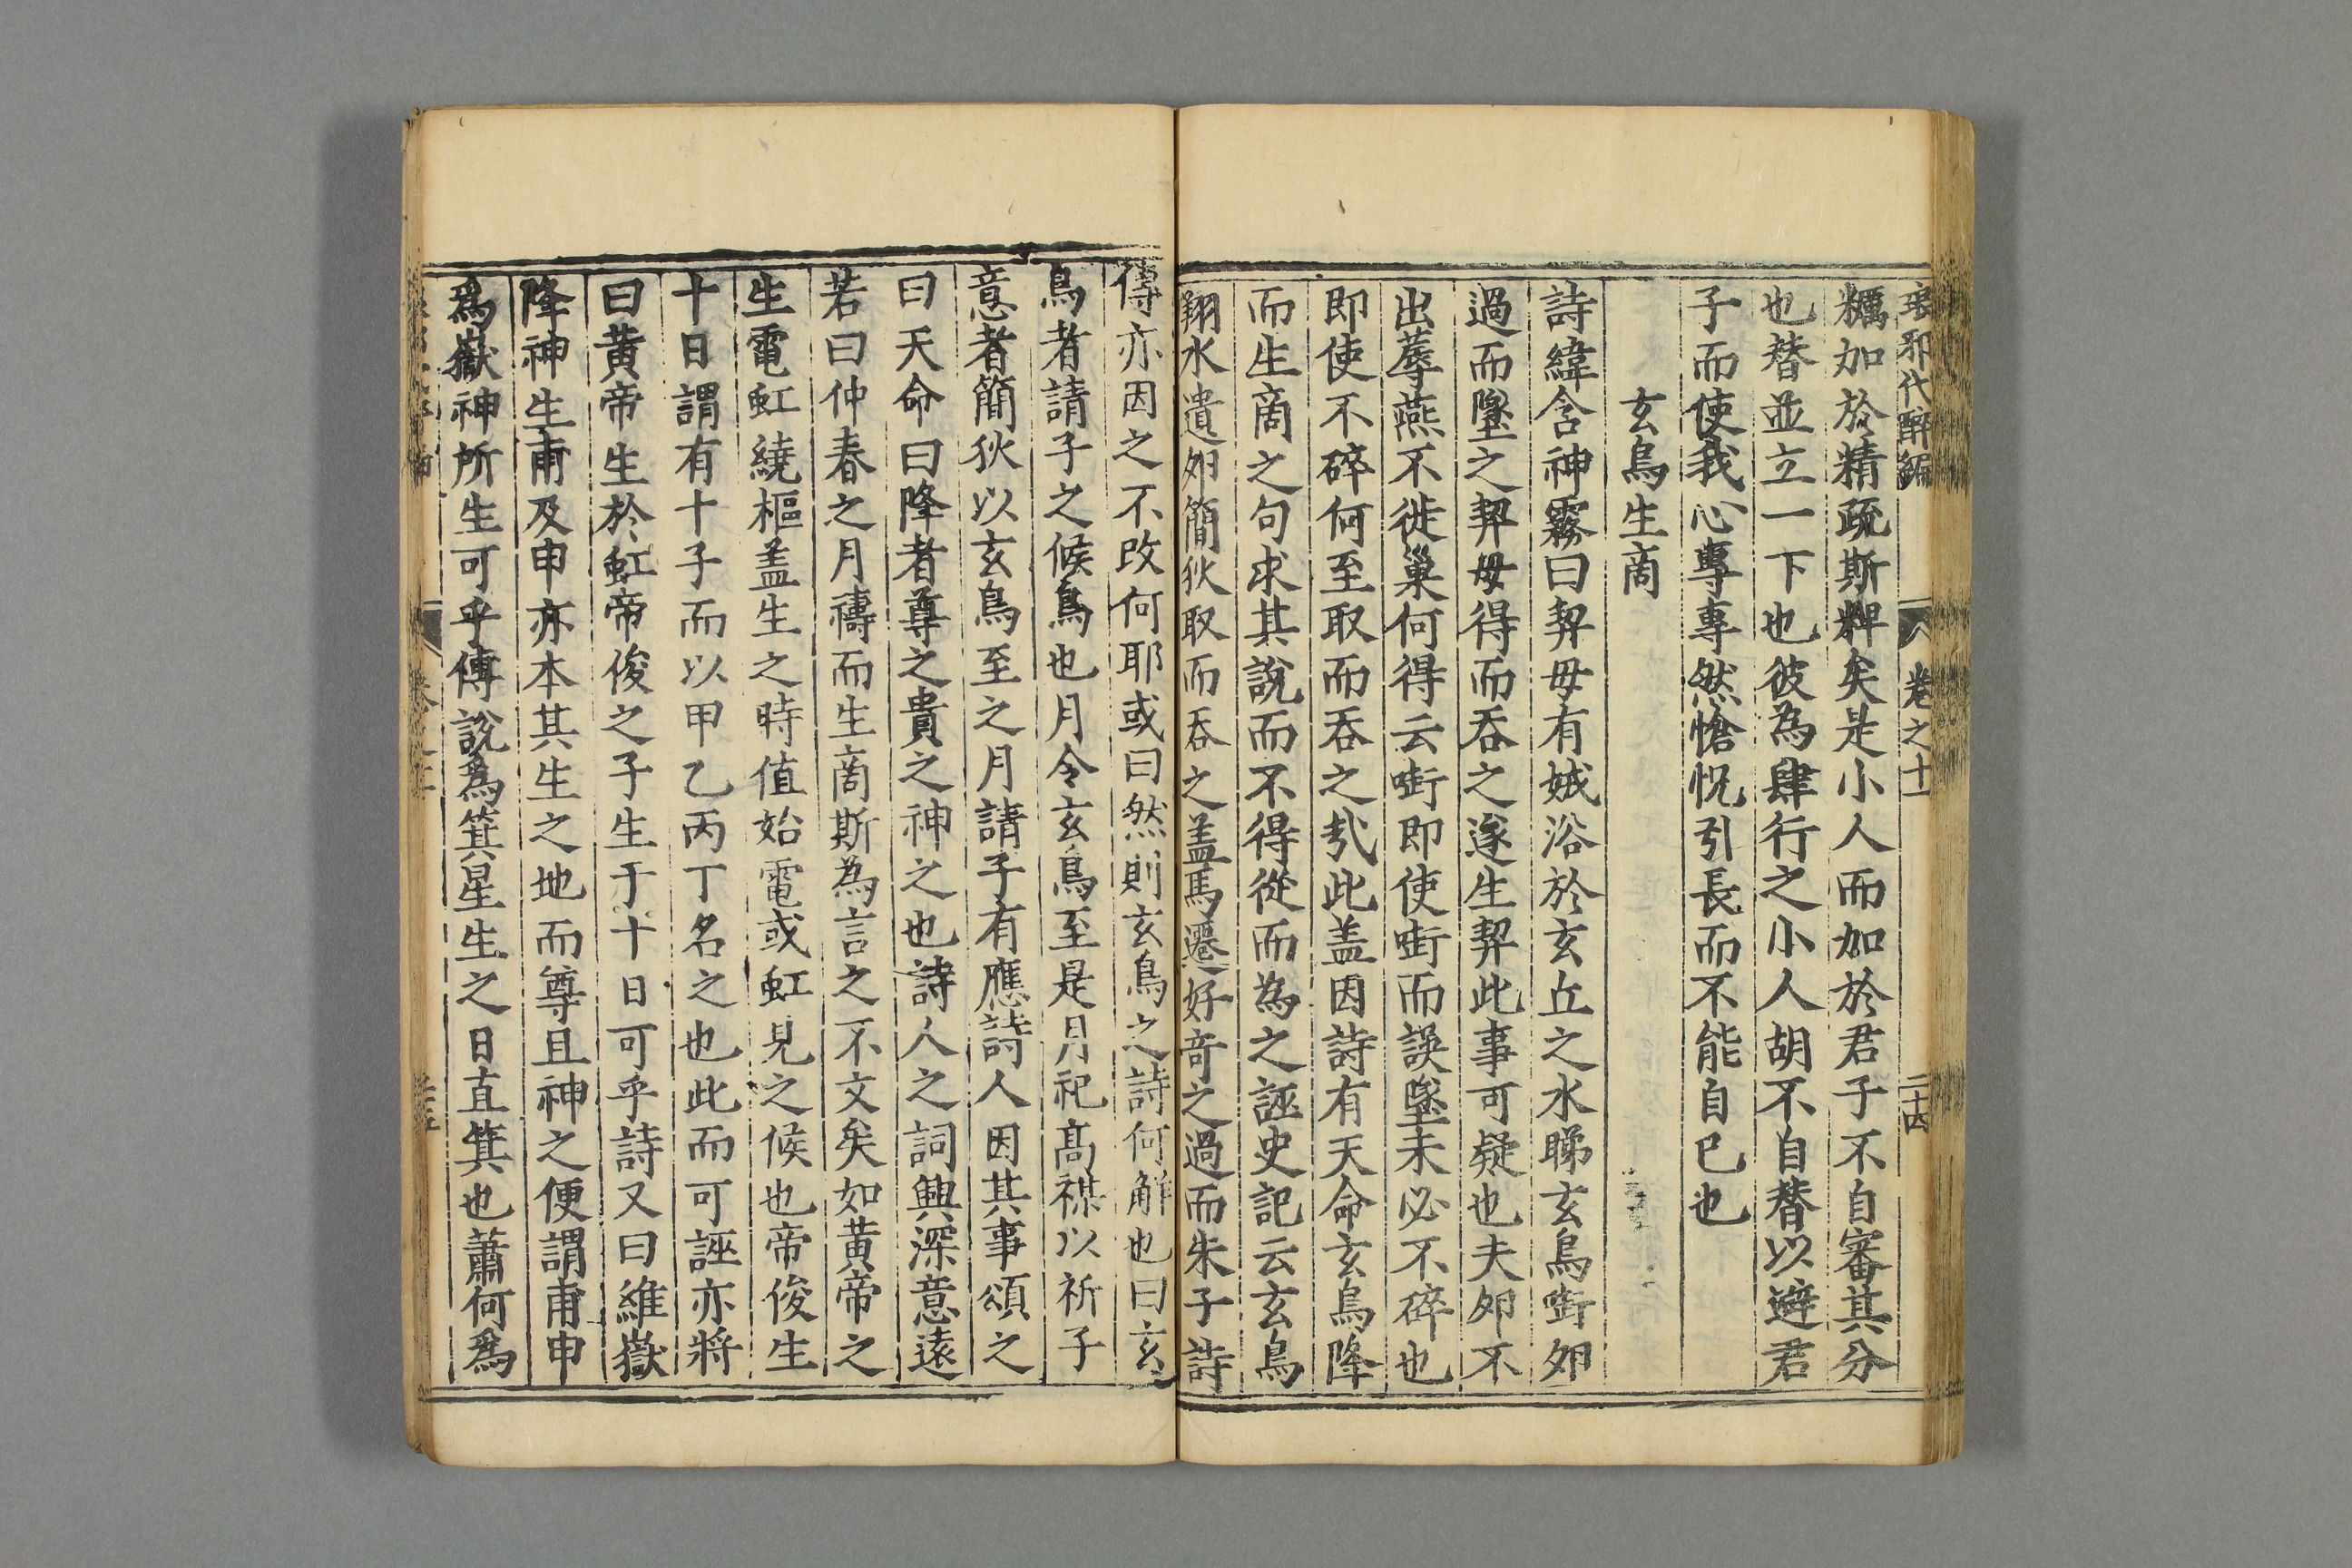 琅邪代醉編 卷之十 二十四
糲加於精疏斯粺矣是小人而加於君子不自審其分
也替並立一下也彼為肆行之小人胡不自替以避君
子而使我心專專然愴怳引長而不能自已也
玄鳥生商
詩緯含神霧曰契母有娀浴於玄丘之水睇玄鳥啣卵
過而墜之契母得而吞之遂生契此事可疑也夫卵不
出蓐燕不徙巢何得云啣即使啣而誤墜未必不碎也
即使不碎何至取而吞之哉此盖因詩有天命玄鳥降
而生商之句求其說而不得從而為之誣史記云玄鳥
翔水遺卵簡狄取而吞之盖馬遷好奇之過而朱子詩
傳亦因之不改何耶或曰然則玄鳥之詩何解也曰玄
鳥者請子之候鳥也月令玄鳥至是月祀高禖以祈子
意者簡狄以玄鳥至之月請子有應詩人因其事頌之
曰天命曰降者尊之貴之神之也詩人之詞興深意遠
若曰仲春之月禱而生商斯為言之不文矣如黃帝之
生電虹繞樞盖生之時值始電或虹見之候也帝俊生
十日謂有十子而以甲乙丙丁名之也此而可誣亦將
曰黃帝生於虹帝俊之子生于十日可乎詩又曰維嶽
降神生甫及申亦本其生之地而尊且神之便謂甫申
為嶽神所生可乎傅說為箕星生之日直箕也蕭何為